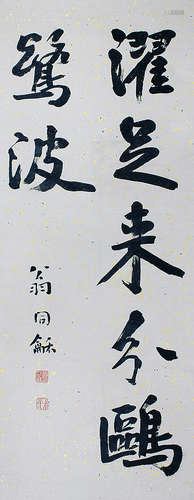 濯足来分鷗
鷺波
翁同龢